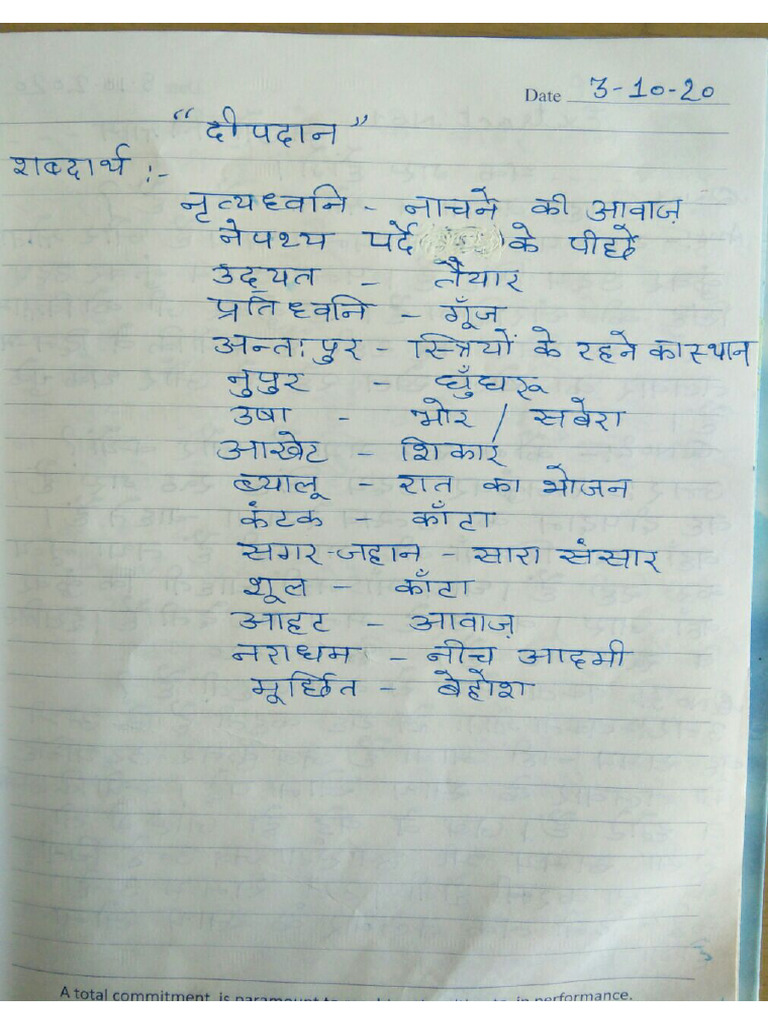 Date 3-10-20
“दीपदान”
शब्दार्थ :-
नृत्यध्वनि - नाचने की आवाज़
नेपथ्य पर्दे के पीछे
उद्यत - तैयार
प्रतिध्वनि - गूँज
अन्तःपुर - स्त्रियों के रहने का स्थान
नुपुर - घुँघरू
उषा - भोर / सवेरा
आखेट - शिकार
ब्यालू - रात का भोजन
कंटक - काँटा
सगर-जहान - सारा संसार
शूल - काँटा
आहट - आवाज़
नराधम - नीच आदमी
मूर्छित - बेहोश
A total commitment is paramount to in performance.